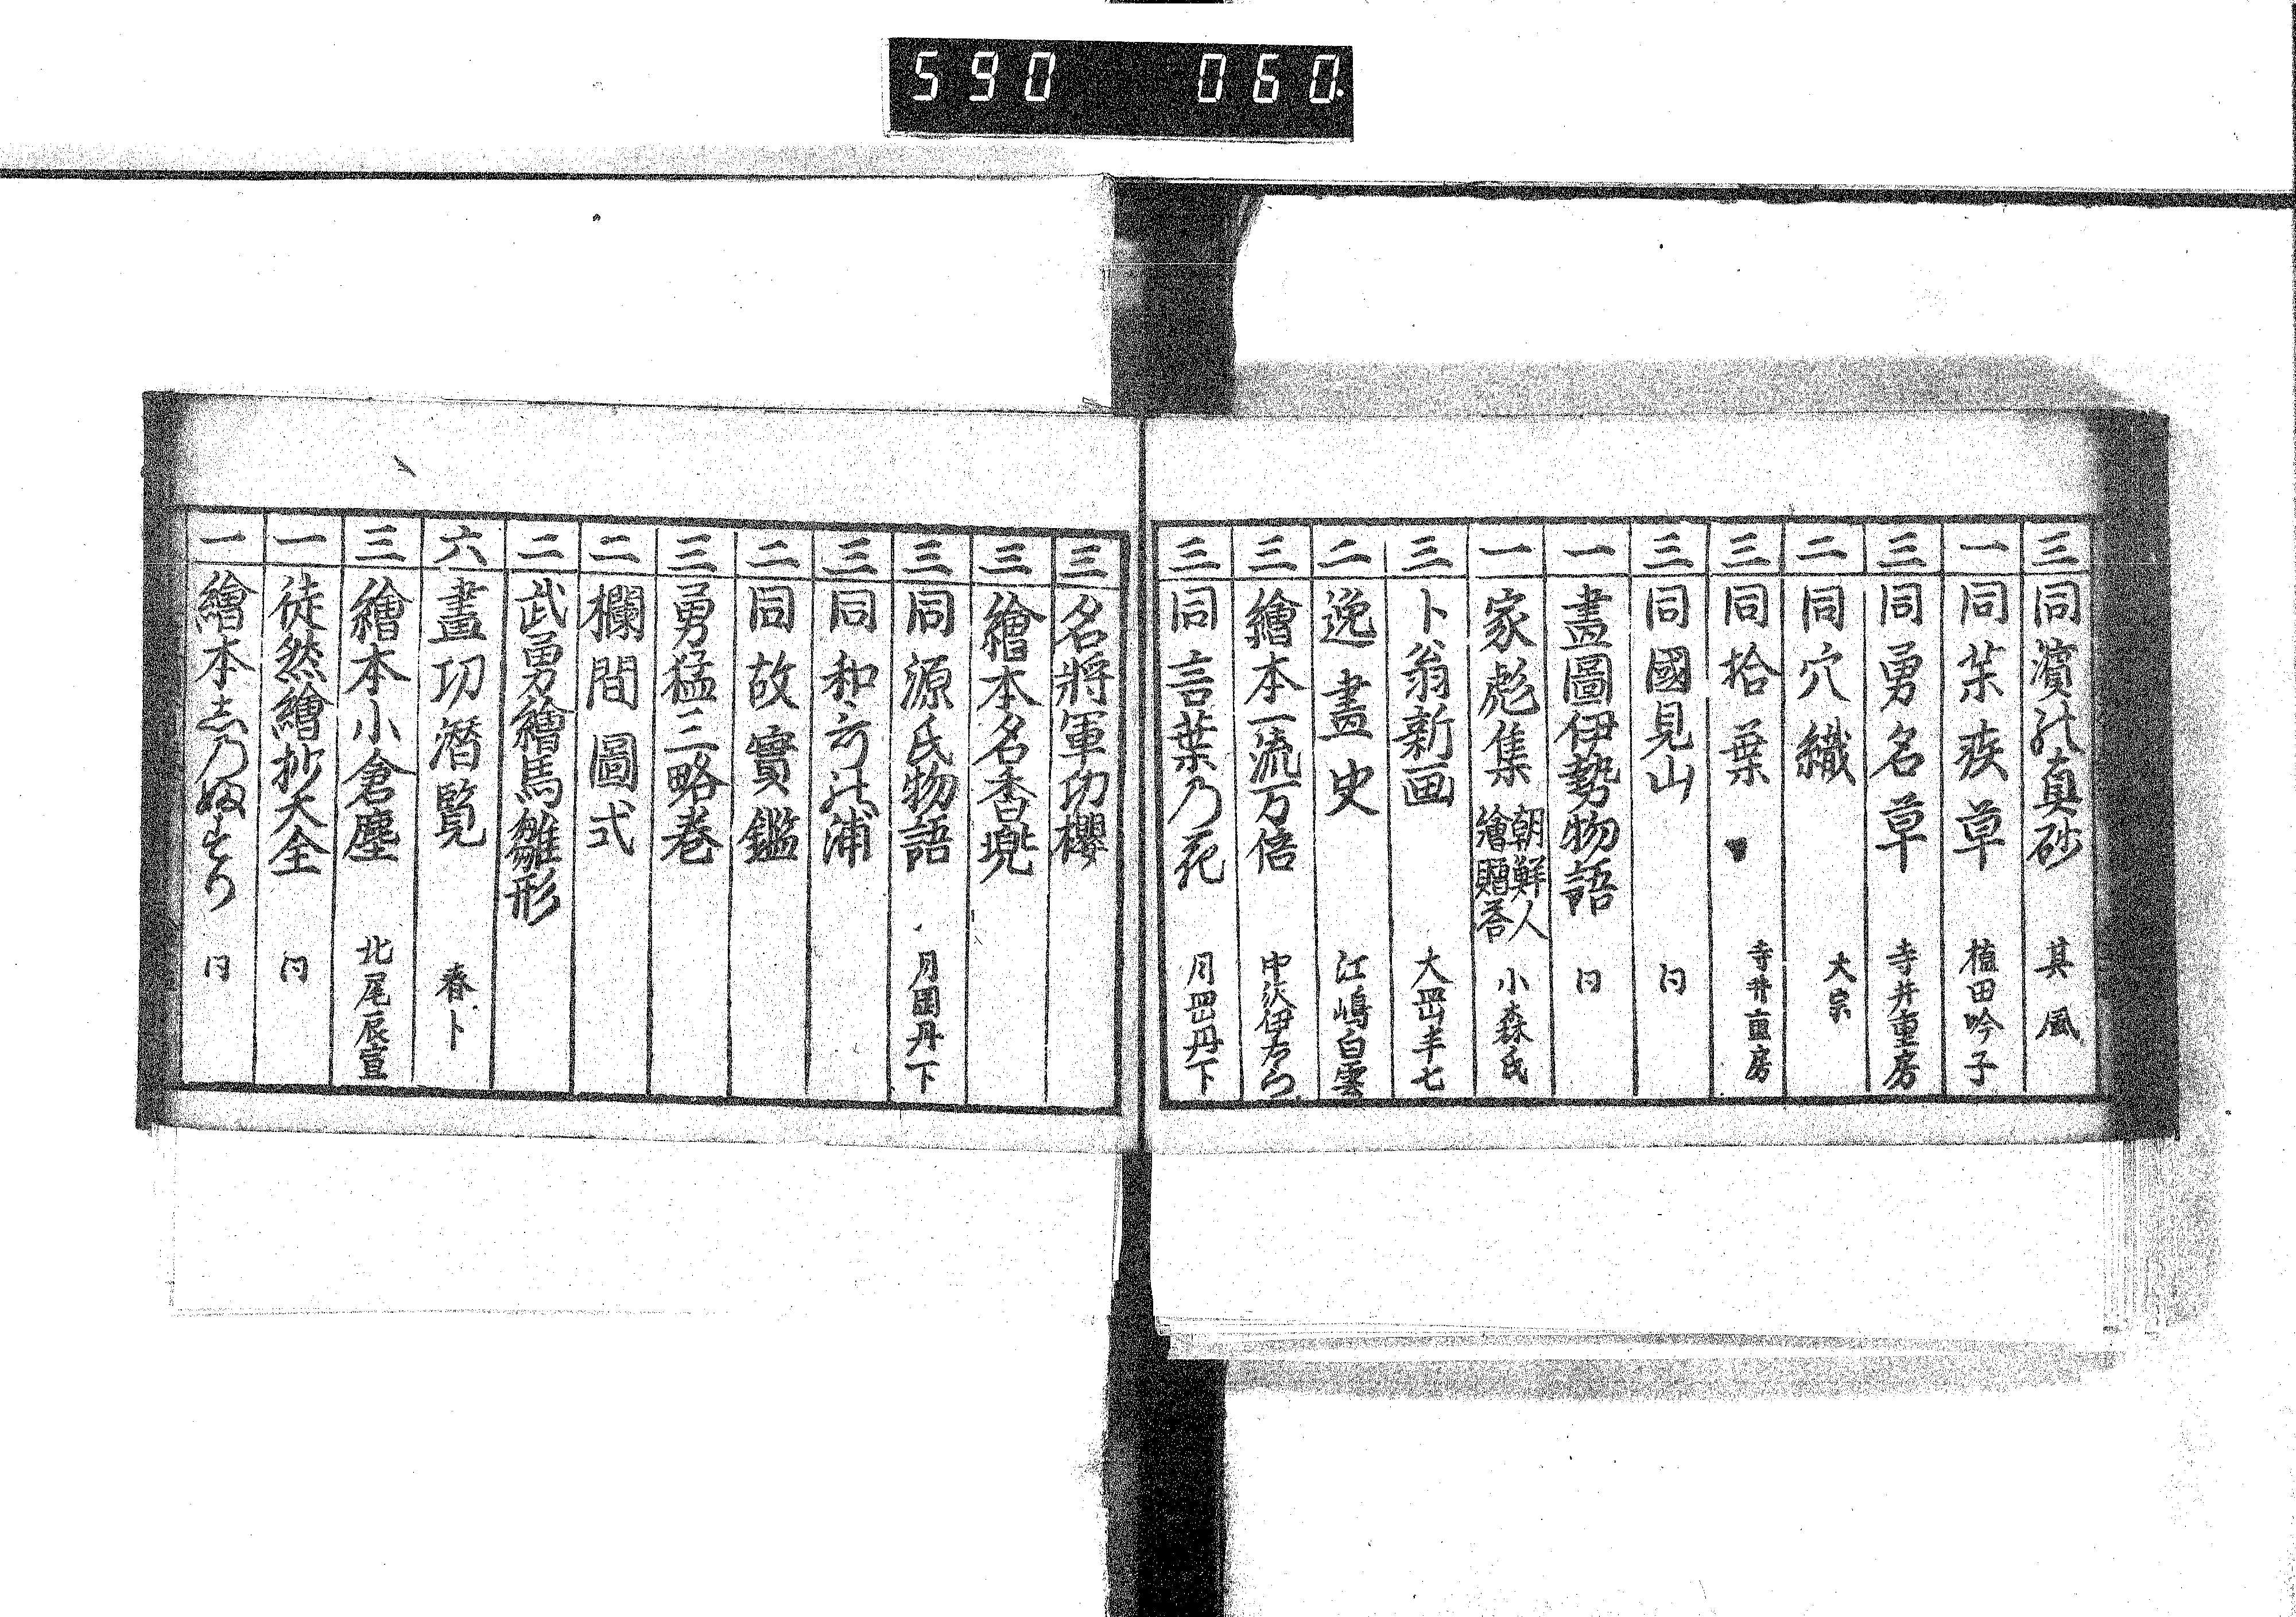 590 060
三 同濱の真砂 其風
一 同茱疾草 植田吟子
三 同勇名草 寺井重房
二 同穴織 大宗
三 同拾葉 寺井重房
三 同國見山 同
一 畫圖伊勢物語 同
一 家彪集 朝鮮人繪贈答 小森氏
三 卜翁新画 大岡半七
二 逸畫史 江嶋白雲
三 繪本一流万倍
三 同言葉乃花 月岡丹下
三 名將軍功櫻
三 繪本名香兠
三 同源氏物語 月岡丹下
三 同和哥の浦
二 同故實鑑
三 勇猛三略巻
二 欄間圖式
二 武勇繪馬雛形
六 畫功潜覧 春卜
三 繪本小倉塵 北尾辰宣
一 徒然繪抄大全 同
一 繪本志乃ぬすり 同